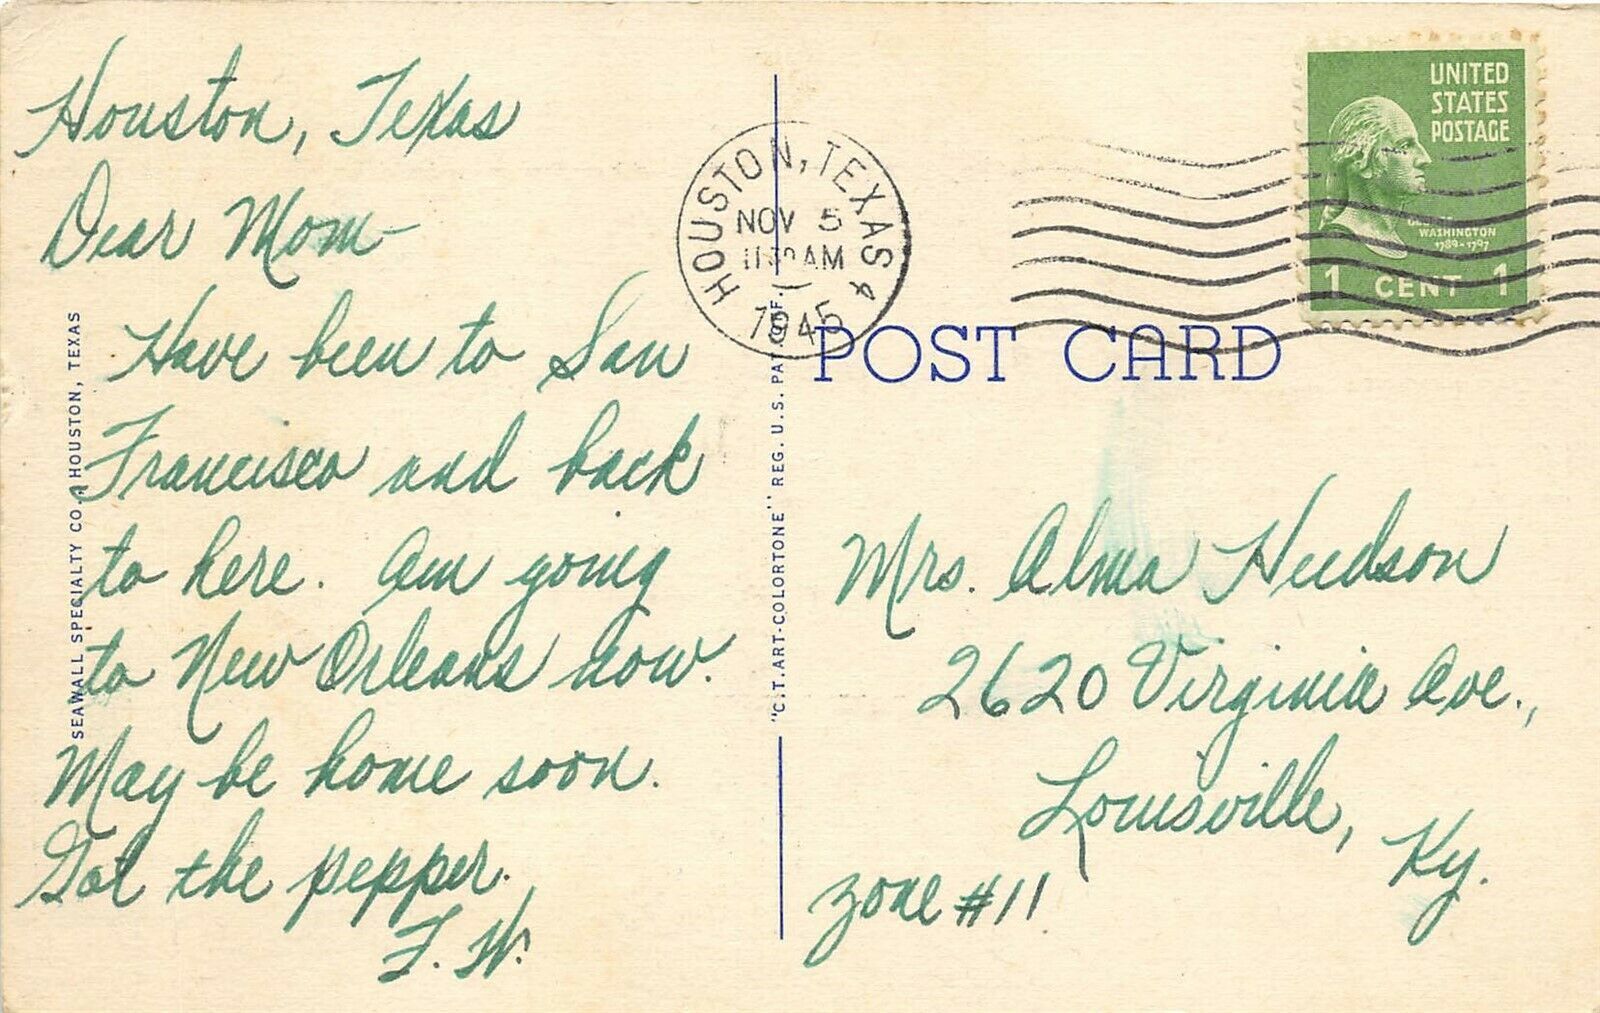 Houston, Texas
Dear Mom-
Have been to San
Francisco and back
to here. Am going
to New Orleans now.
May be home soon.
Got the pepper.
F. W.
SEAWALL SPECIALTY CO., HOUSTON, TEXAS
"C.T. ART-COLORTONE" REG. U.S. PAT. OFF.
HOUSTON, TEXAS 4
NOV 5
1130 AM
1945
UNITED
STATES
POSTAGE
WASHINGTON
1789-1797
1 CENT 1
POST CARD
Mrs. Alma Hudson
2620 Virginia Ave.,
Louisville, Ky.
Zone #11